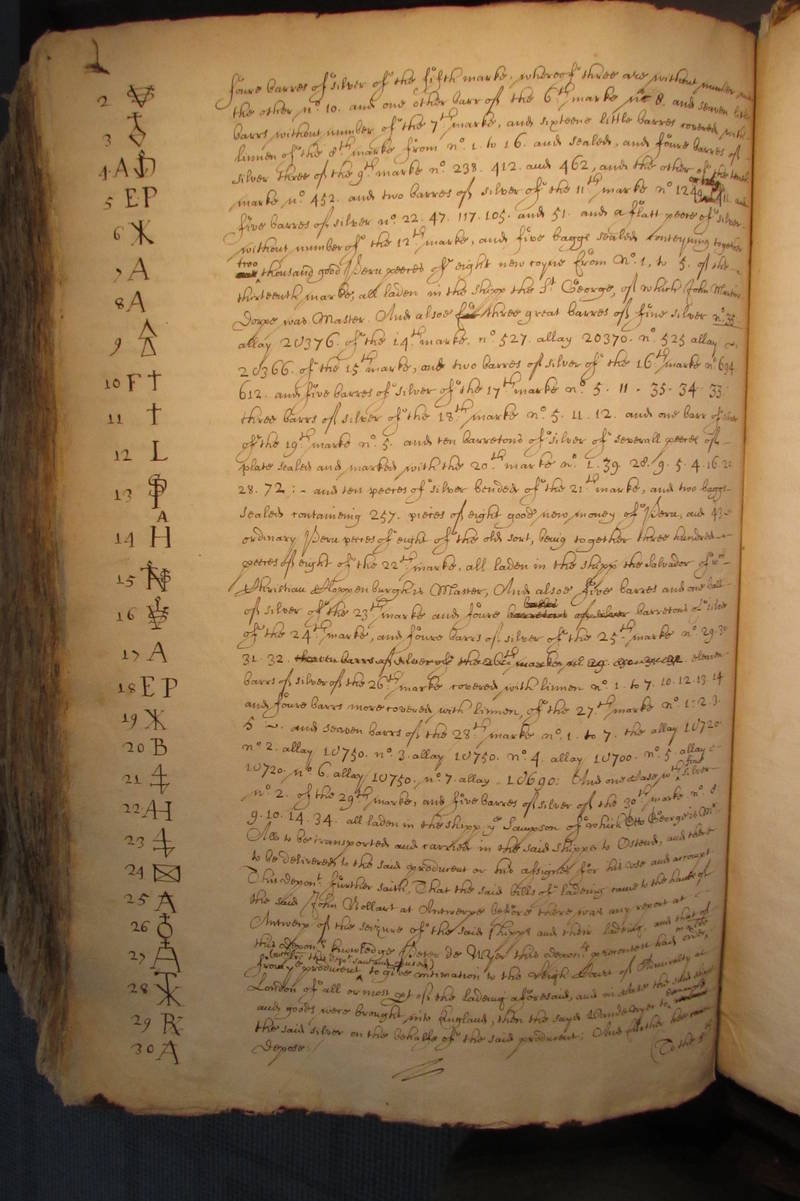 foure barres of silver of the fifth marke, whereof three are without number and
the other no. 10. and one other barr of the 6th marke no 8. and seaven little
barrs without number of the 7th marke, and sixteene little barres covered with
linnen of the 8th marke from no. 1. to 16. and sealed, and foure barres of
silver three of the 9th marke no. 238. 412. and 462, and the other of the tenth
marke no. 452. and two barres of silver of the 11th marke no 1249 411. and
five barres of silver no. 22. 47. 117. 105. and 51. and a flatt peece of silver
without number of the 12th marke, and five baggs sealed conteyning together
two thousand good Peru peeces of eight new coyne from No. 1. to 5. of the
thirteenth marke, all laden in the shipp the St. George, of which John Martins
Dorpe was Master. And alsoe three great barres of fine silver no. 35
allay 20376. of the 14th marke. no. 527. allay 20370. no. 525 allay
20366. of the 15th marke, and two barres of silver of the 16th marke no 694
612. and five barres of silver of the 17th marke no. 5. 11. 35. 34. 33.
three barrs of silver of the 18th marke no. 5. 11. 12. and one barr of silver
of the 19th marke no. 5. and ten barretons of silver of severall peeces of
plate sealed and marked with the 20th marke no. 1. 39. 28. 9. 5. 4. 16. 20
28. 72: and ten peeces of silver bended of the 21th marke, and two baggs
sealed containeing 257. pieces of eight good new money of Peru, and 43
ordinary Peru peeces of eight of the old sort, being together three hundred
peeces of eight of the 22th marke, all laden in the shipp the Salvador of wch
Christian Cloppenburgh is Master, And alsoe five barres and one ball
of silver of the 23th marke and foure barretons of silver barretons of silver
of the 24th marke, and foure barrs of silver of the 25th marke no. 29. 30
31. 32. eleaven barrs of silver of the 26th marke eleven
barrs of silver of the 26th marke covered with linnen no. 1. to 7. 10. 12. 13. 14
and foure barrs more covered with linnen, of the 27th marke no. 1. 2. 3.
5. and seaven barrs of the 28th marke no. 1. to 7. the allay 10720
no 2. allay 10750. no. 3. allay 10750. no. 4. allay 10700. no. 5. allay
10720. no 6. allay 10750. no. 7. allay 10690: And one wth silver
no 2. of the 29th marke, and five barres of silver of the 30th marke no. 8
9. 10. 14. 34. all laden in the shipp ye Sampson of which Otto George is Mr.
All to be transported and carried in the said shipps to Ostend, and there
to be delivered to the said producent or his assignes for his use and account
This depont. further saith, That the said bills of ladeing came to the hands of
the said John Mollart at Antwerpe before there was any report at
Antwerp of the seizure of the said shipps and their ladeing, and that of
this deponts. knowledge Peter de Wyse this deponts. had order
from ye producent to give intimation to the high Court of Admiralty at
London of all or most pt of the ladeing aforesaid, and in case the said shipps
and goods were brought into England, then the sayd to demand
the said silver on the behalfe of the said producent; And further hee cannot
depose.
To the 5th
2
3
4 A
5 EP
6
7 A
8 A
9
10 F
11
12 L
13
14 H
15
16
17 A
18 EP
19
20 B
21
22 AH
23
24
25 A
26
27
28
29
30 A